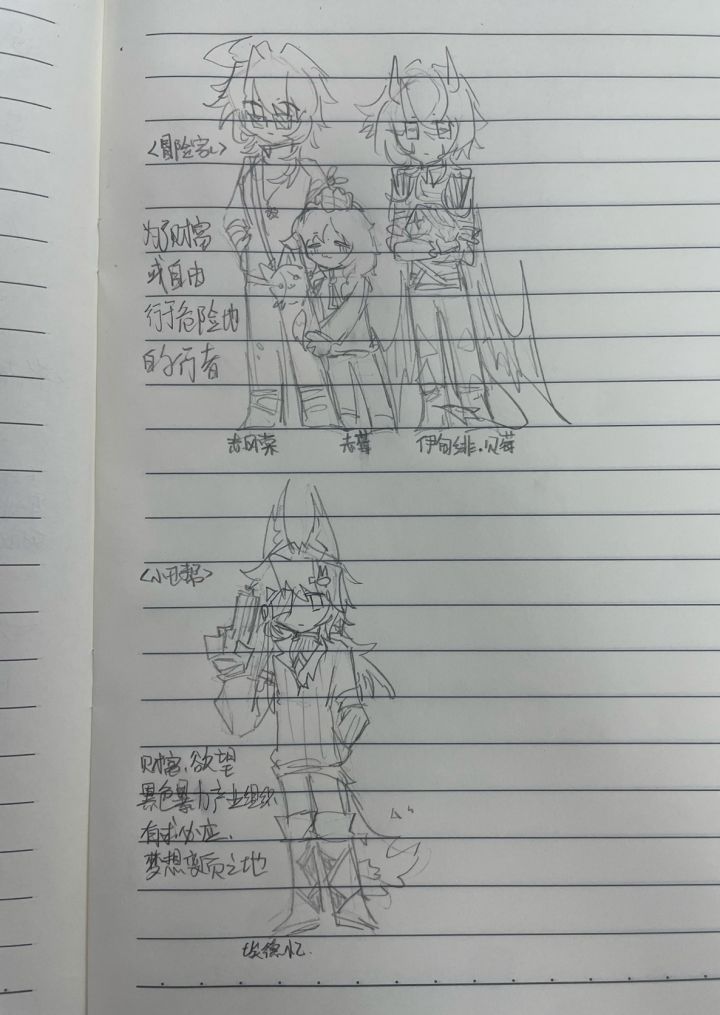 <冒险家>
为了财富
或自由
行于危险地
的行者
伊甸绯.贝莓
<小丑帮>
财富.欲望
黑色暴力产业组织.
有求必应.
梦想变质之地
埃德忆.